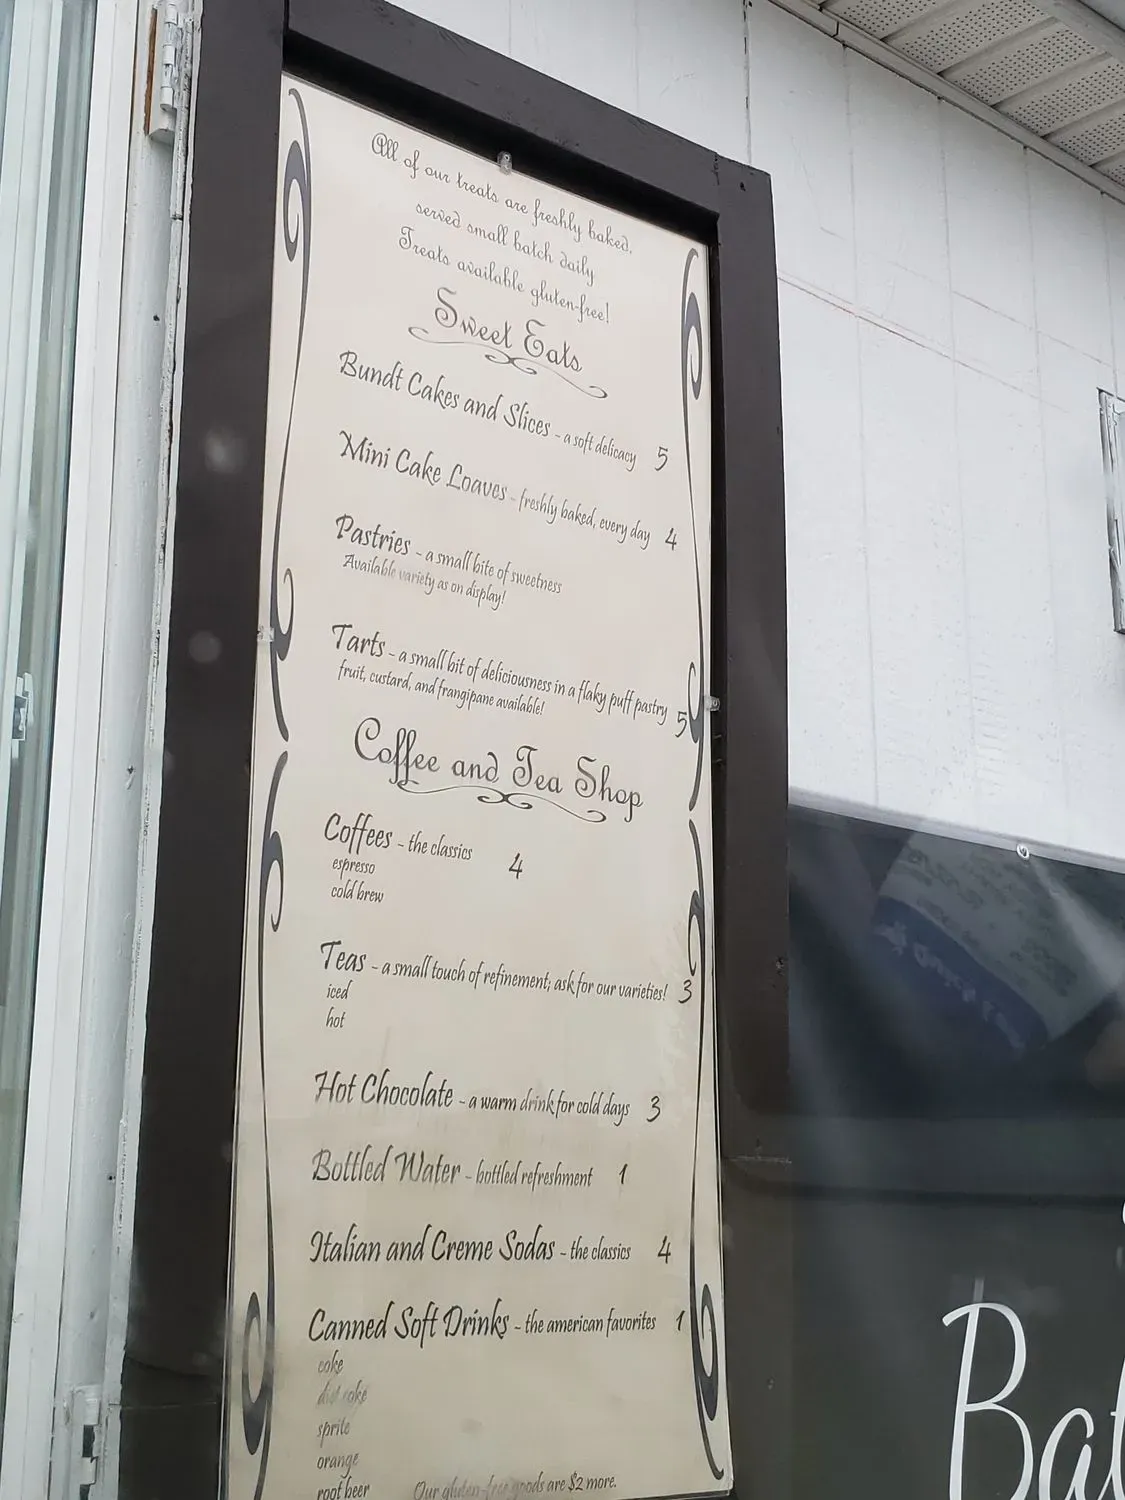 All of our treats are freshly baked,
served small batch daily
Treats available gluten-free!
Sweet Eats
Bundt Cakes and Slices - a soft delicacy 5
Mini Cake Loaves - freshly baked, every day 4
Pastries - a small bite of sweetness
Available variety as on display!
Tarts - a small bit of deliciousness in a flaky puff pastry 5
fruit, custard, and frangipane available!
Coffee and Tea Shop
Coffees - the classics 4
espresso
cold brew
Teas - a small touch of refinement; ask for our varieties! 3
iced
hot
Hot Chocolate - a warm drink for cold days 3
Bottled Water - bottled refreshment 1
Italian and Creme Sodas - the classics 4
Canned Soft Drinks - the american favorites 1
coke
diet coke
sprite
orange
root beer
Our gluten-free goods are $2 more.
Bat